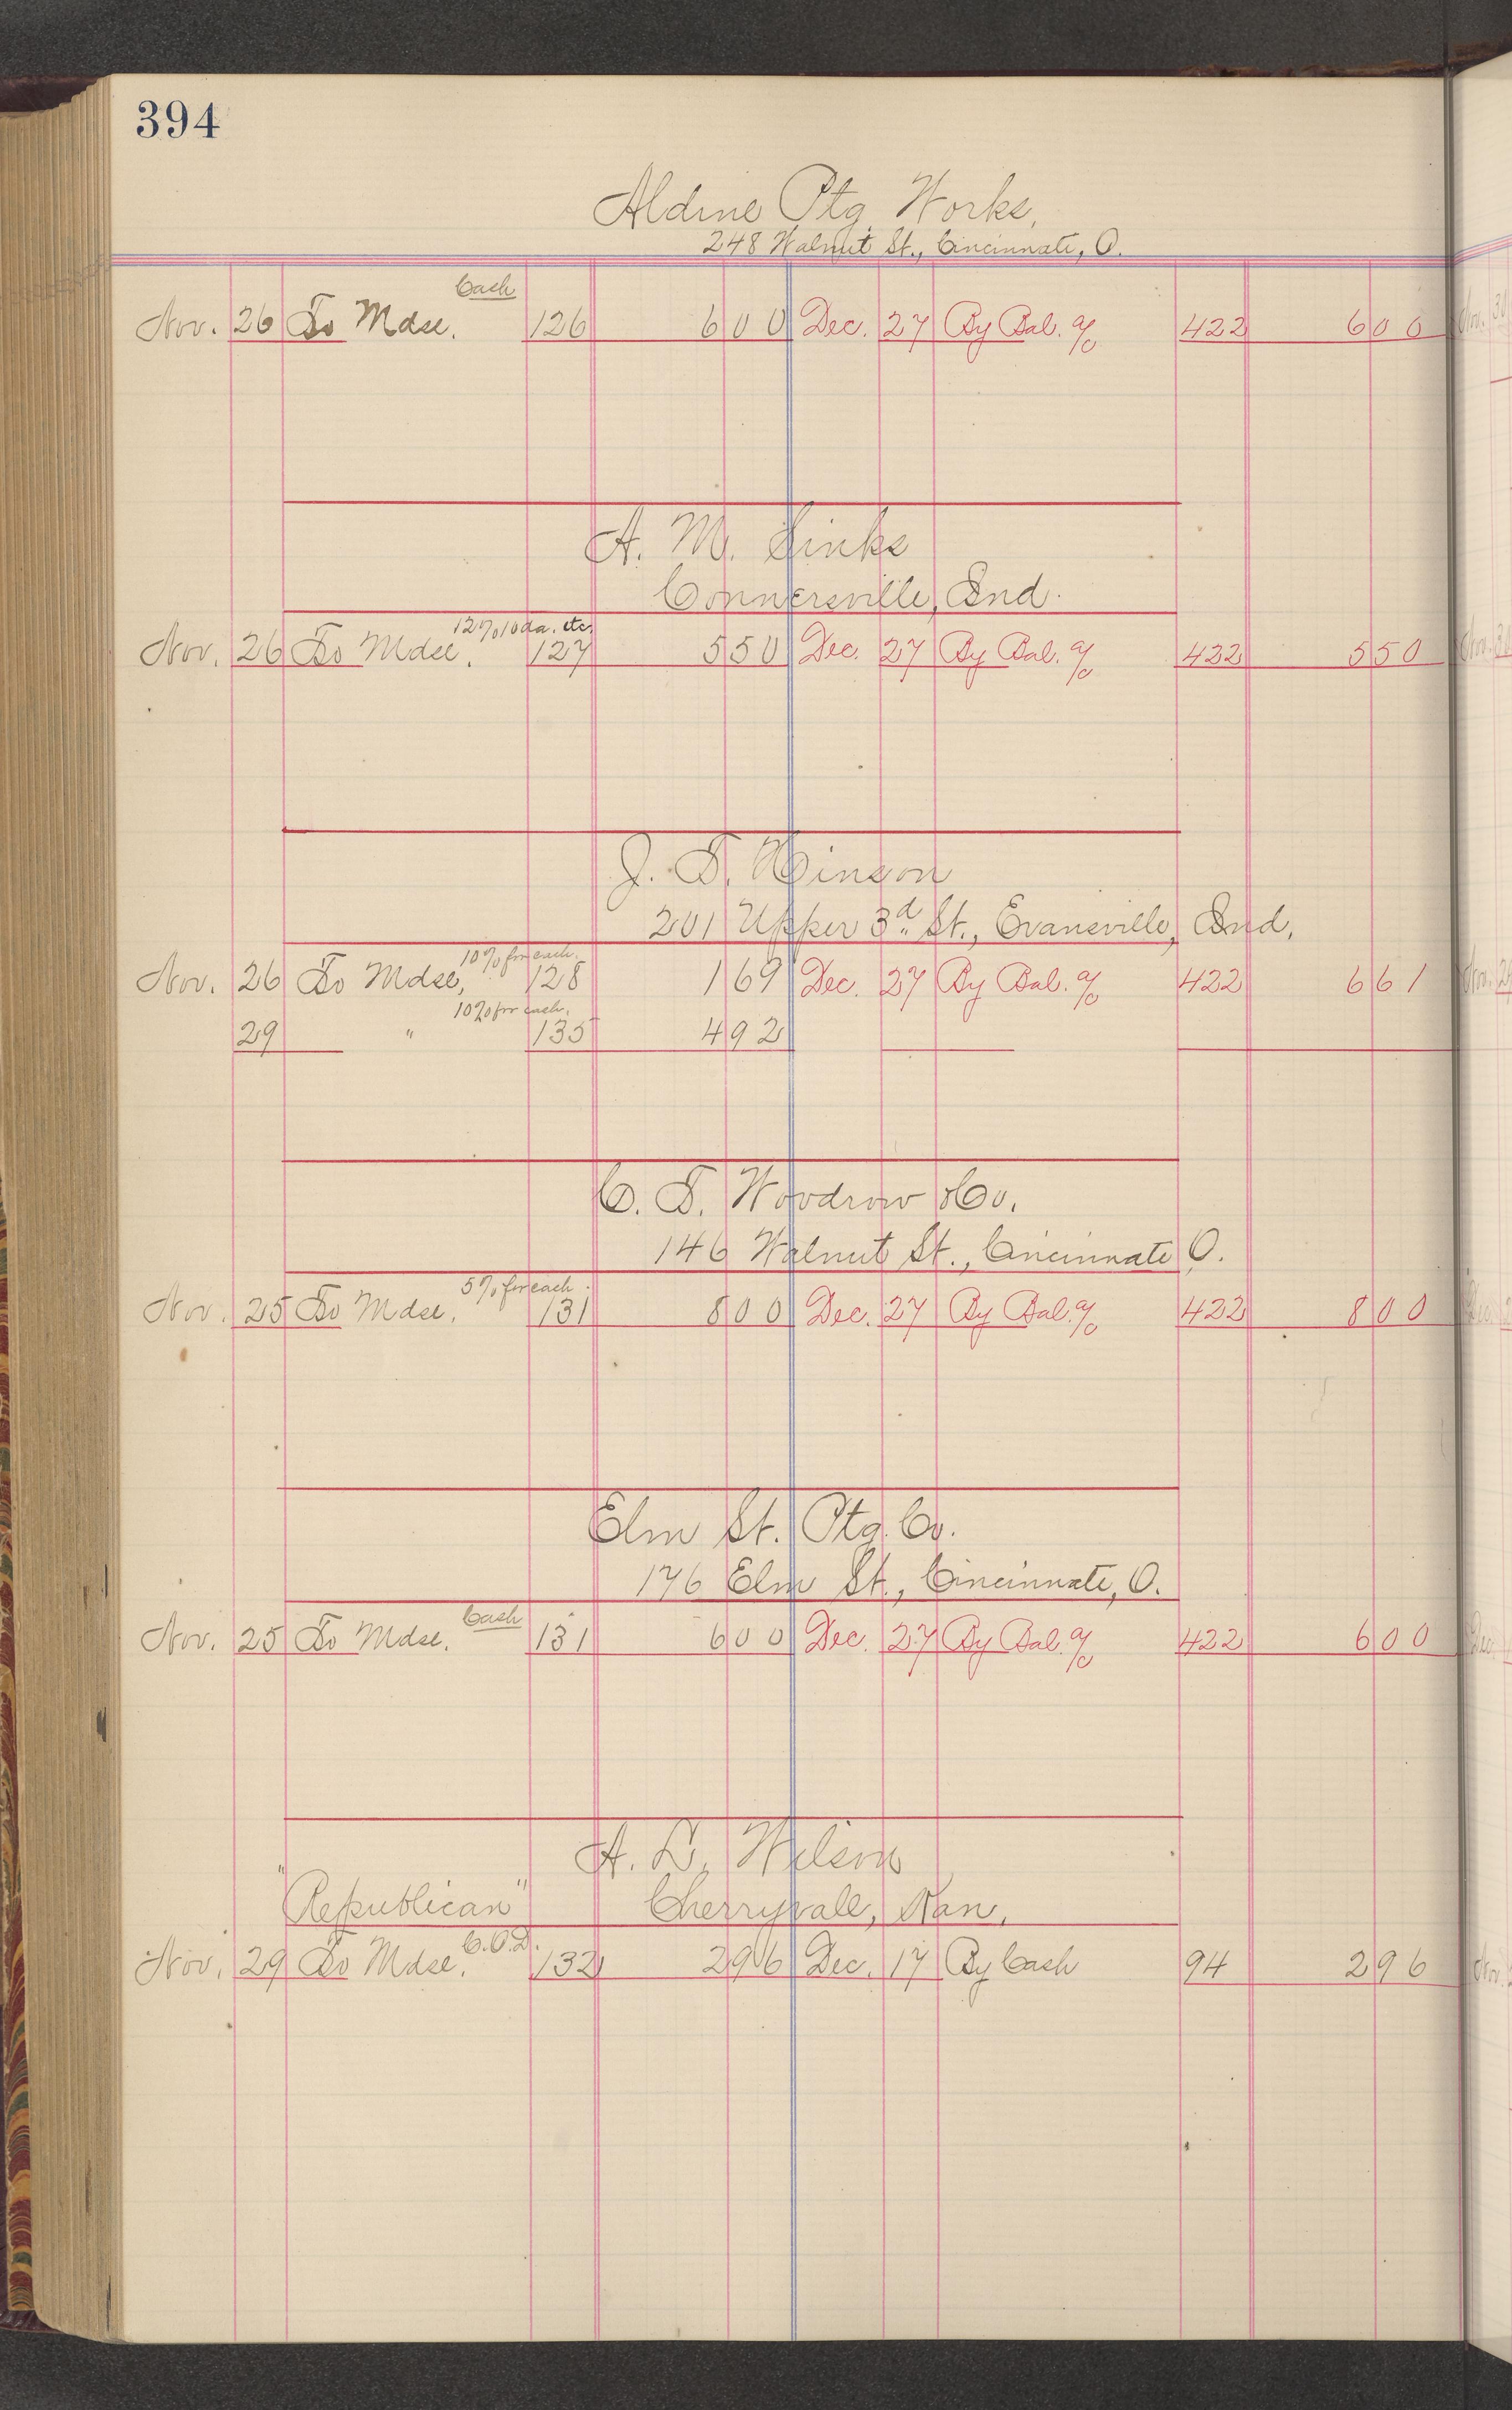 394
Aldine Ptg. Works,
248 Walnut St., Cincinnati, O.
Cash
Nov. 26 To Mdse. 126 6 00 Dec. 27 By Bal. a/c 422 6 00
A. M. Sinks
Connersville, Ind.
12% 10 da. etc.
Nov. 26 To Mdse. 127 5 50 Dec. 27 By Bal. a/c 422 5 50
J. T. Hinson
201 Upper 3d St., Evansville, Ind.
10% for cash.
Nov. 26 To Mdse, 128 1 69 Dec. 27 By Bal. a/c 422 6 61
10% for cash.
29 " 135 4 92
C. T. Woodrow & Co.
146 Walnut St., Cincinnati, O.
5% for cash.
Nov. 25 To Mdse. 131 8 00 Dec. 27 By Bal. a/c 422 8 00
Elm St. Ptg. Co.
176 Elm St., Cincinnati, O.
Cash
Nov. 25 To Mdse. 131 6 00 Dec. 27 By Bal. a/c 422 6 00
A. L. Wilson
"Republican" Cherryvale, Kan.
C.O.D.
Nov. 29 To Mdse. 132 2 96 Dec. 17 By Cash 94 2 96